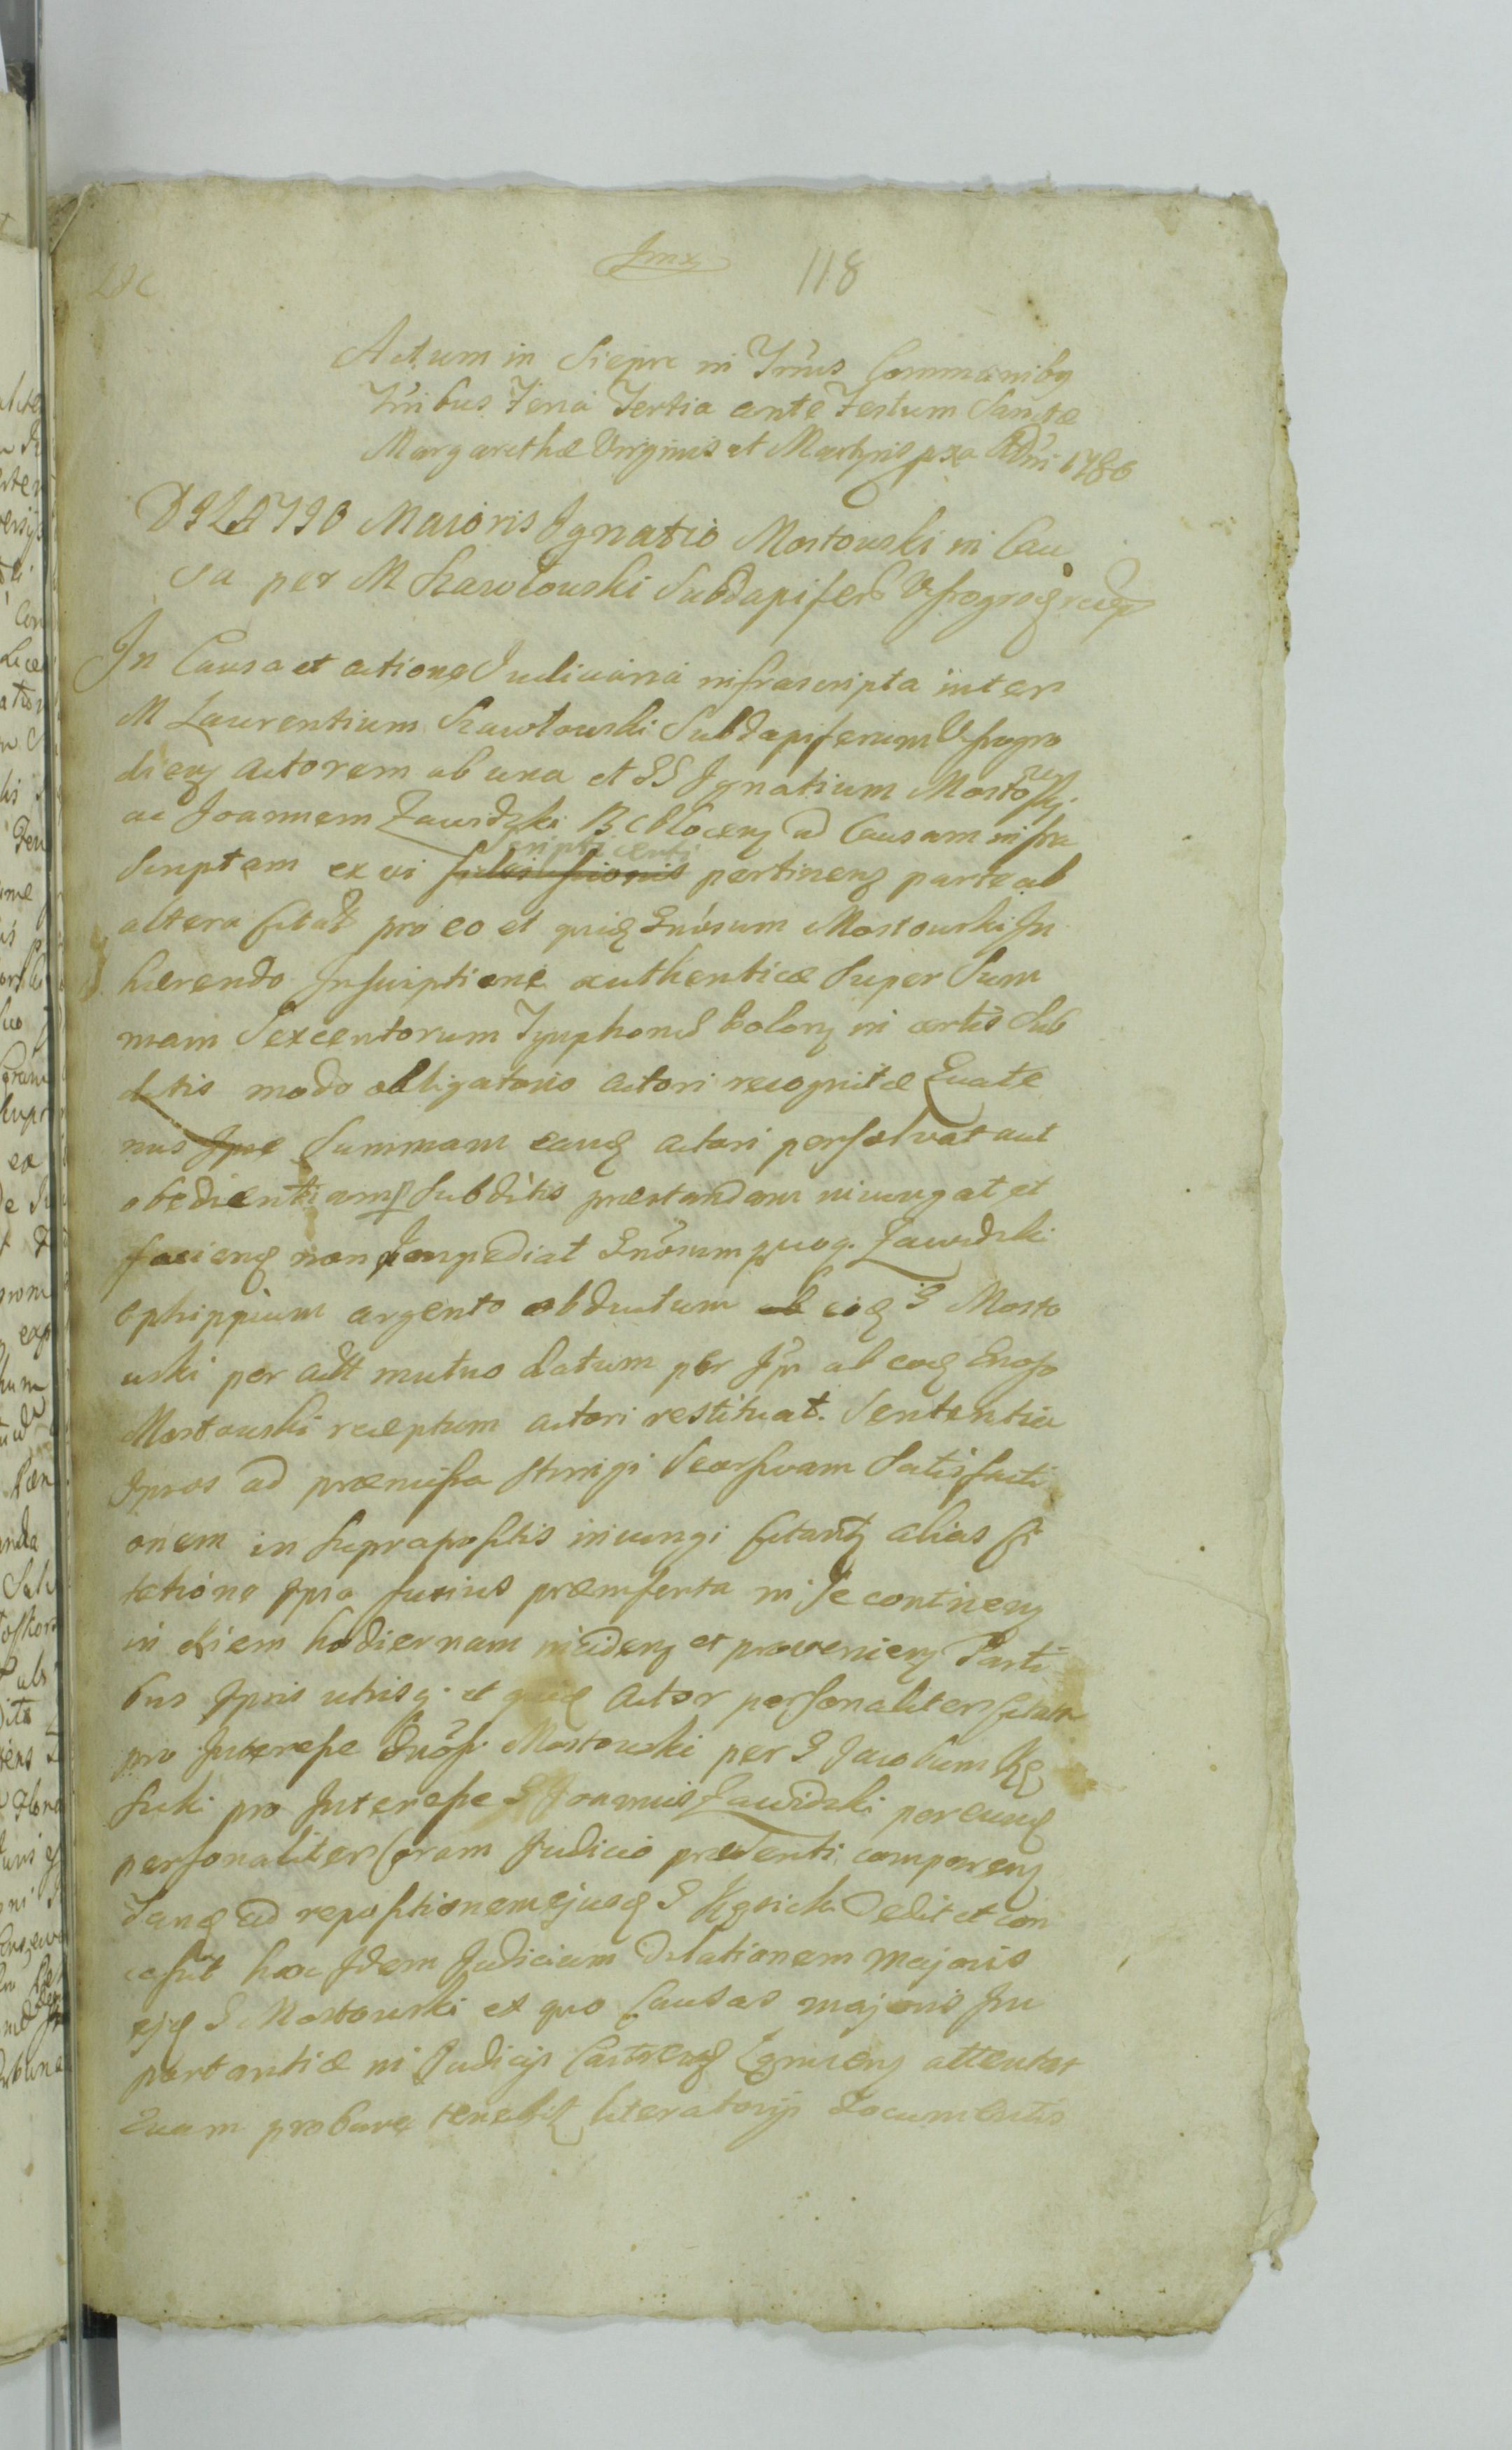 Jmx 118
Actum in Siepre in Trmis Communibg
Trribus Feria Tertia ante Festum Sanctæ
Margarethæ Virginis et Martyris pxa ADni
DILATIO Maioris Ignatio Mostowski in Cau
sa per M Skawlowski Subdapiferũ
In Causa et actione Judiciaria infrascripta inter
M Laurentium Skawlowski Subdapiferum Visogro
dieng actorem ab una et GG Ignatium Mostowskj
ac Joannem Zawidzki B C Ploceng ad Causam infra
Scriptam ex vi pertineng parte ab
altera citat pro eo et quid Gnosum Mostowski In
hærendo Inscriptione authenticæ Super Sum
mam Sexcentorum Tynphonũ Polong in certis Sub
ditis modo obligatorio actori recognitæ Quate
nus Ipse Summam eand actori persolvat aut
obedientiam Subditis præstandam iniungat et
faciend non Impediat Gnosum quoq. Zawidzki
ephippium argento obductum ab eod G Mosto
wski per actt mutuo datum per Ipr ab eod Gnoso
Mostowski receptum actori restituat. Sententia
Ipsos ad præmissa stringi Seorsivam Satisfacti
onem in Suprapositis iniungi citand alias Ci
tatione Ipsa fusius præmserta in Se contineng
in diem hodiernam incideng et provenieng Parti
bus Ipsis utrisq. et quid Actor personaliter citatt
pro Interesse Gnosi Mostowski per G Jacobum Kę
sicki pro Interesse G Joannis Zawidzki per eund
personaliter Coram Judicio præsenti compareng
Tand ad repositionem ejusd G Kęsicki Dedit et con
cessit hoc Idem Judicium Dilationem majoris
ejd G Mostowski ex quo Causas majoris Im
portantiæ in Judicijs Castrend attentat
Quam probare tenebit literatorijs Documentis